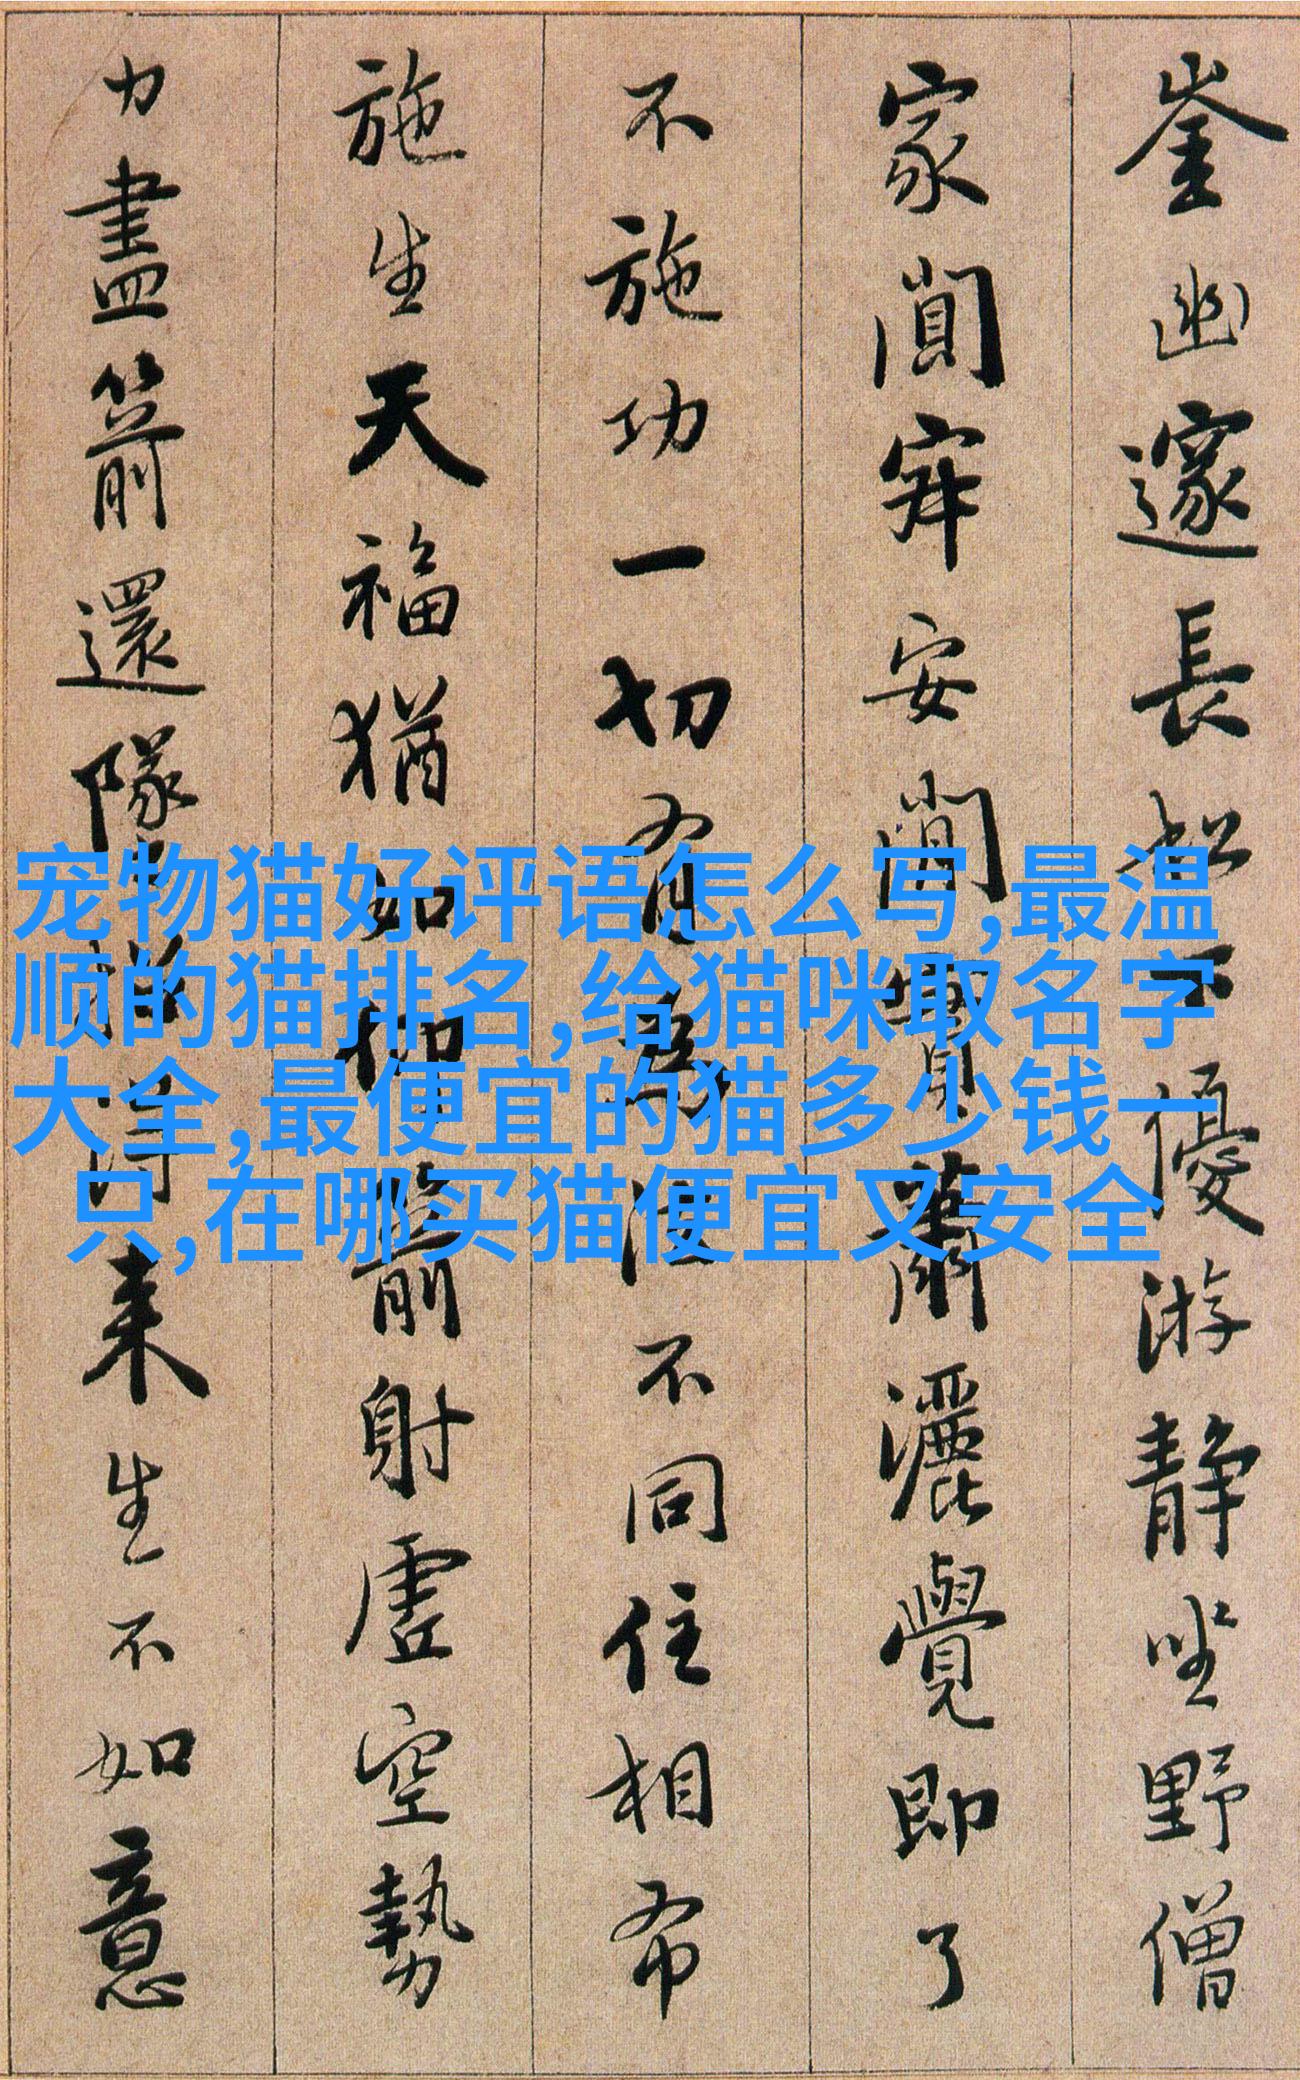 崟幽邃長松下優游静坐野僧
家闃寂安閑實蕭灑覺即了
不施功一切有為法不同住相布
施生天福猶如仰箭射虛空勢
力盡箭還墜招得来生不如意
宠物猫好评语怎么写,最温
顺的猫排名,给猫咪取名字
大全,最便宜的猫多少钱一
只,在哪买猫便宜又安全